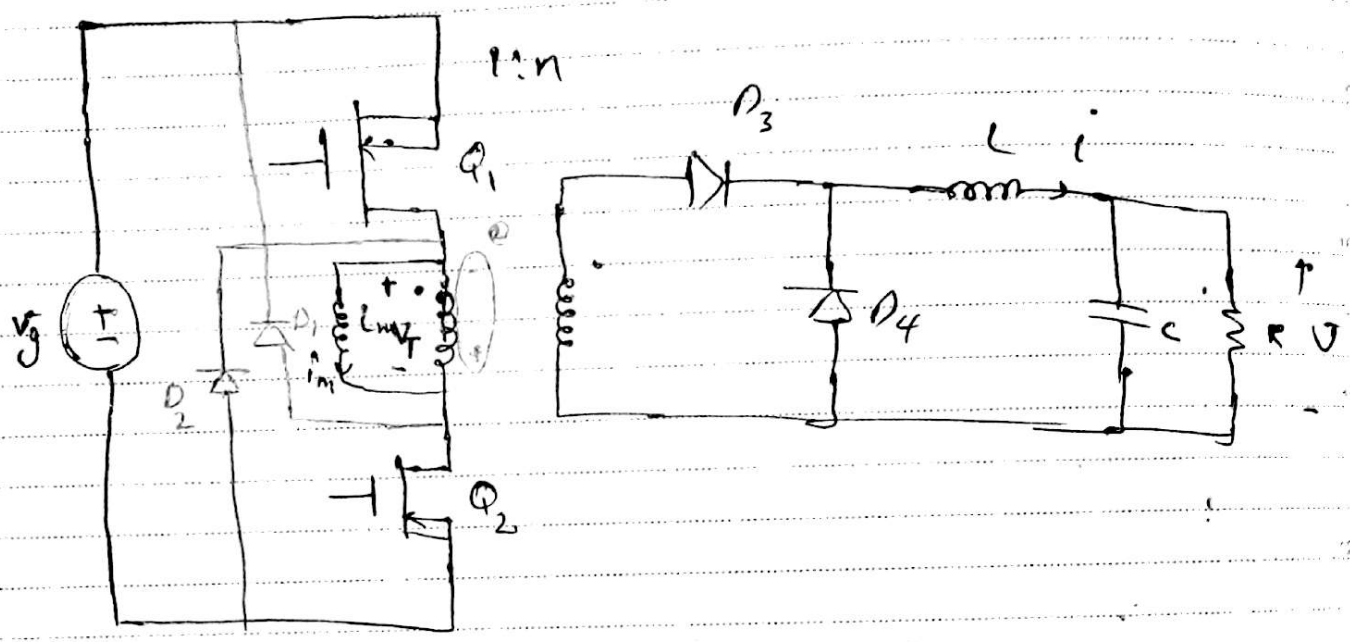 1:n
D3
L i
Q1
+
Vg
+
-
D1
Lm
VT
im
-
D2
D4
C
R
+
V
-
Q2